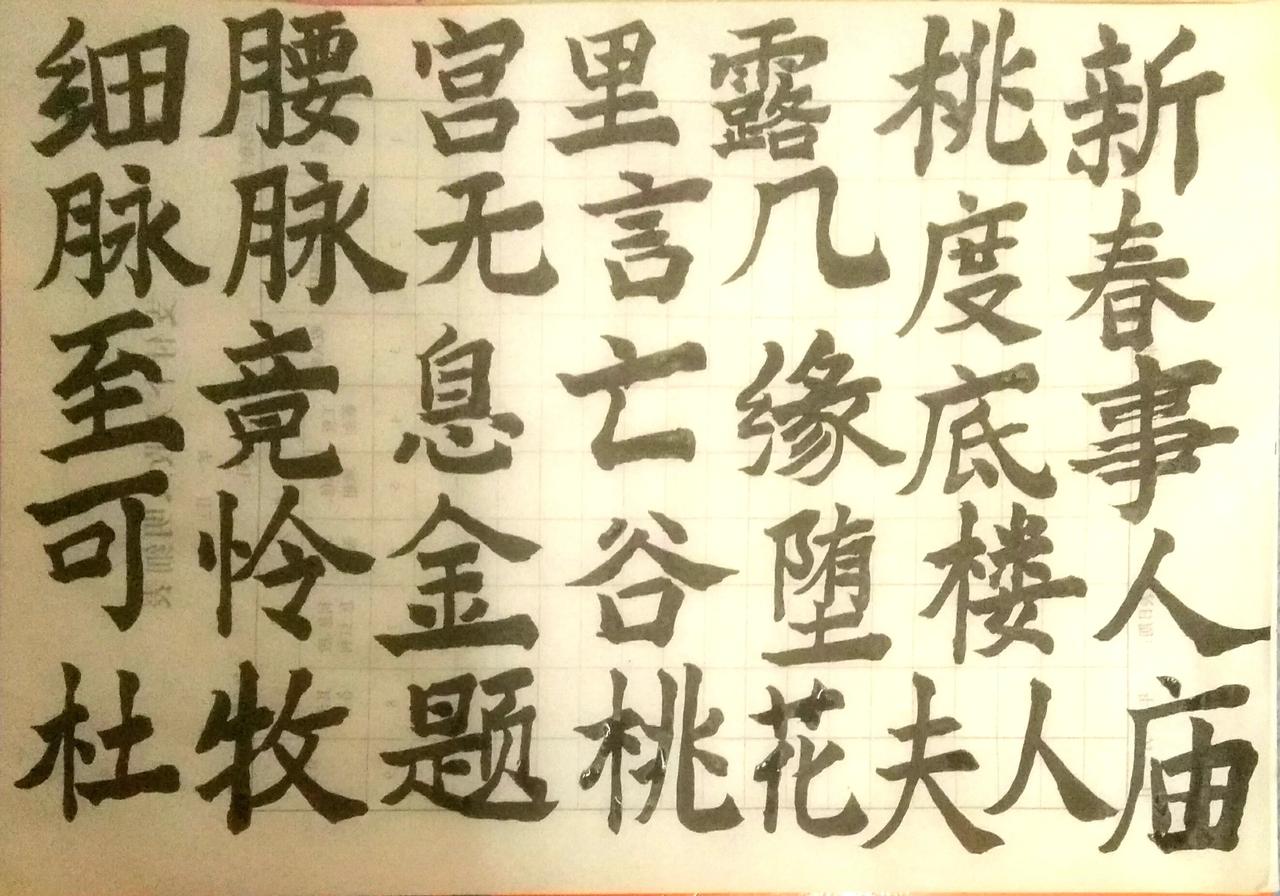 细腰宫里露桃新
脉脉无言几度春
至竟息亡缘底事
可怜金谷堕楼人
杜牧题桃花夫人庙